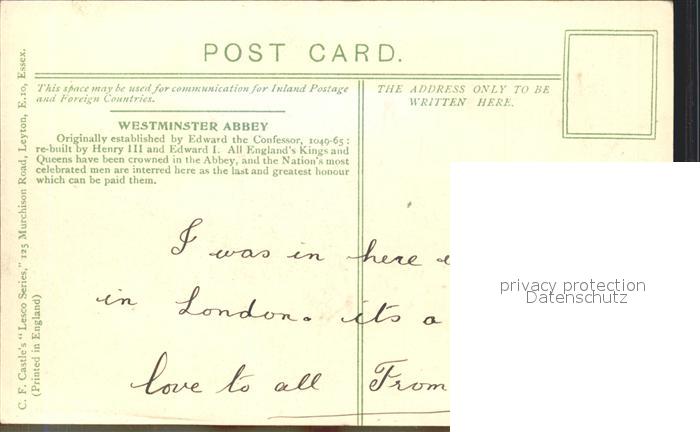 POST CARD.
This space may be used for communication for Inland Postage
and Foreign Countries.
THE ADDRESS ONLY TO BE
WRITTEN HERE.
WESTMINSTER ABBEY
Originally established by Edward the Confessor, 1049-65:
re-built by Henry III and Edward I. All England's Kings and
Queens have been crowned in the Abbey, and the Nation's most
celebrated men are interred here as the last and greatest honour
which can be paid them.
I was in here
in London. its a
love to all From
C. F. Castle's "Lesco Series," 125 Murchison Road, Leyton, E.10, Essex.
(Printed in England)
privacy protection
Datenschutz